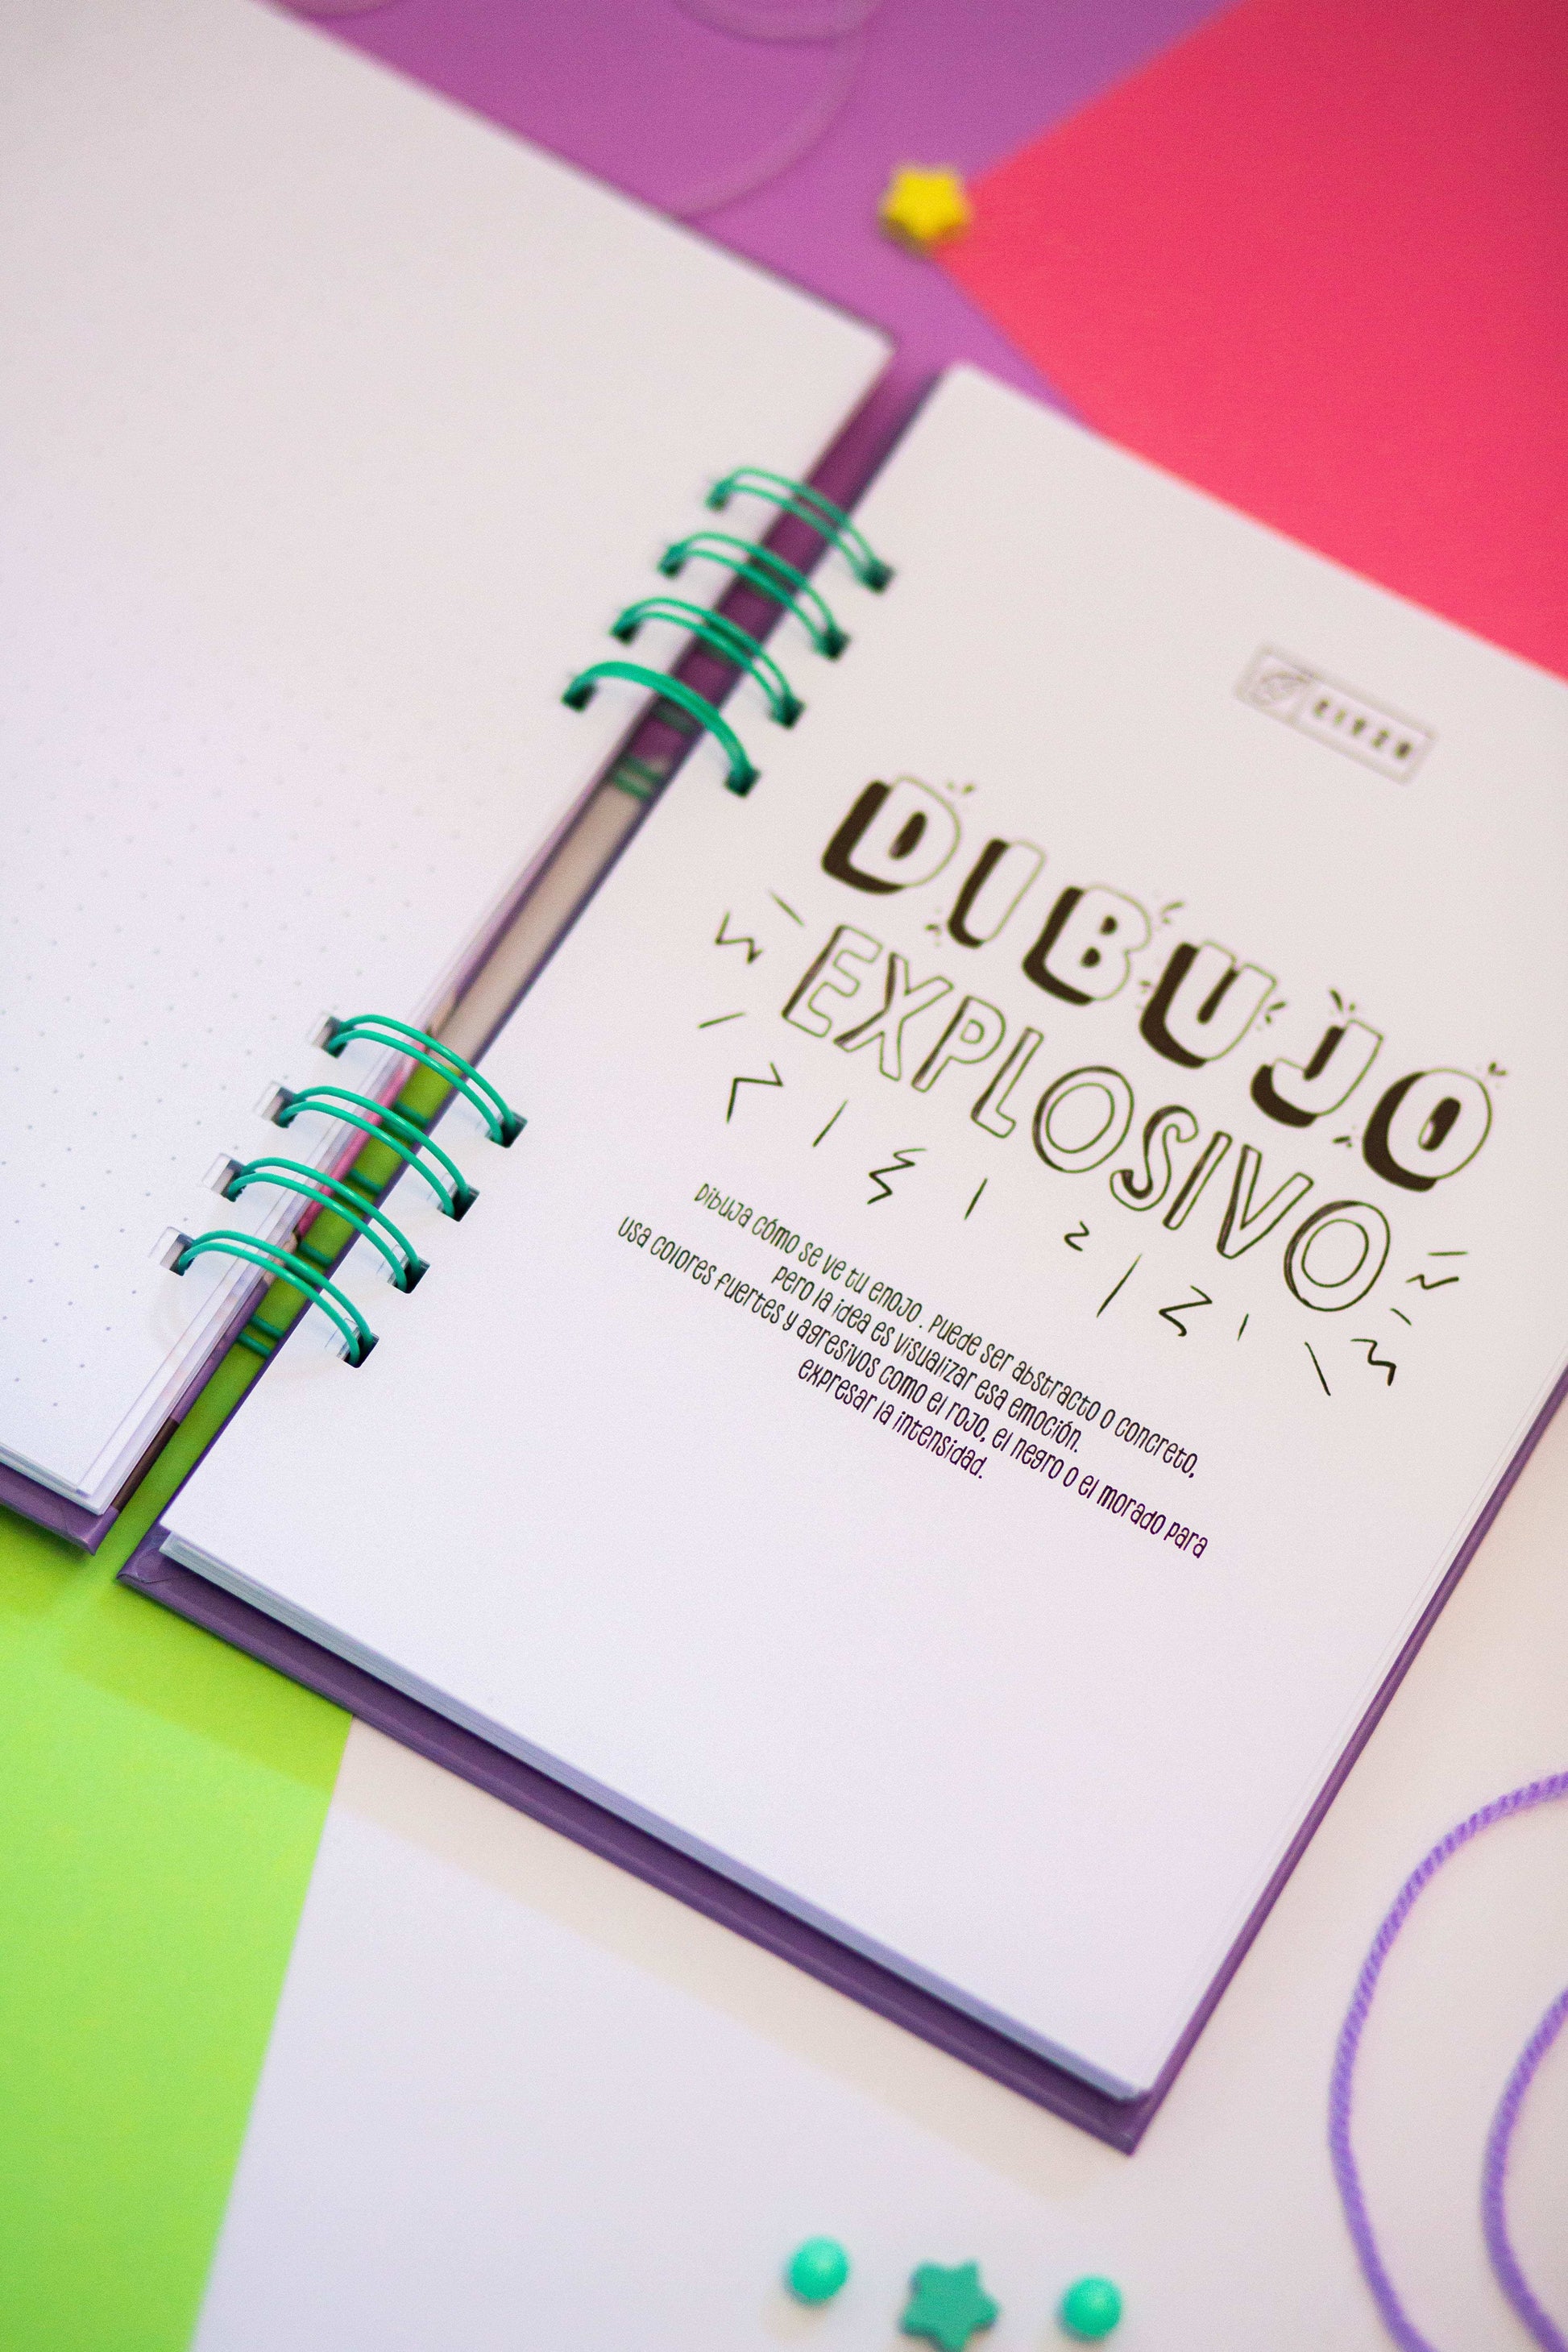 DIBUJO
EXPLOSIVO
Dibuja cómo se ve tu enojo. Puede ser abstracto o concreto,
pero la idea es visualizar esa emoción.
Usa colores fuertes y agresivos como el rojo, el negro o el morado para
expresar la intensidad.